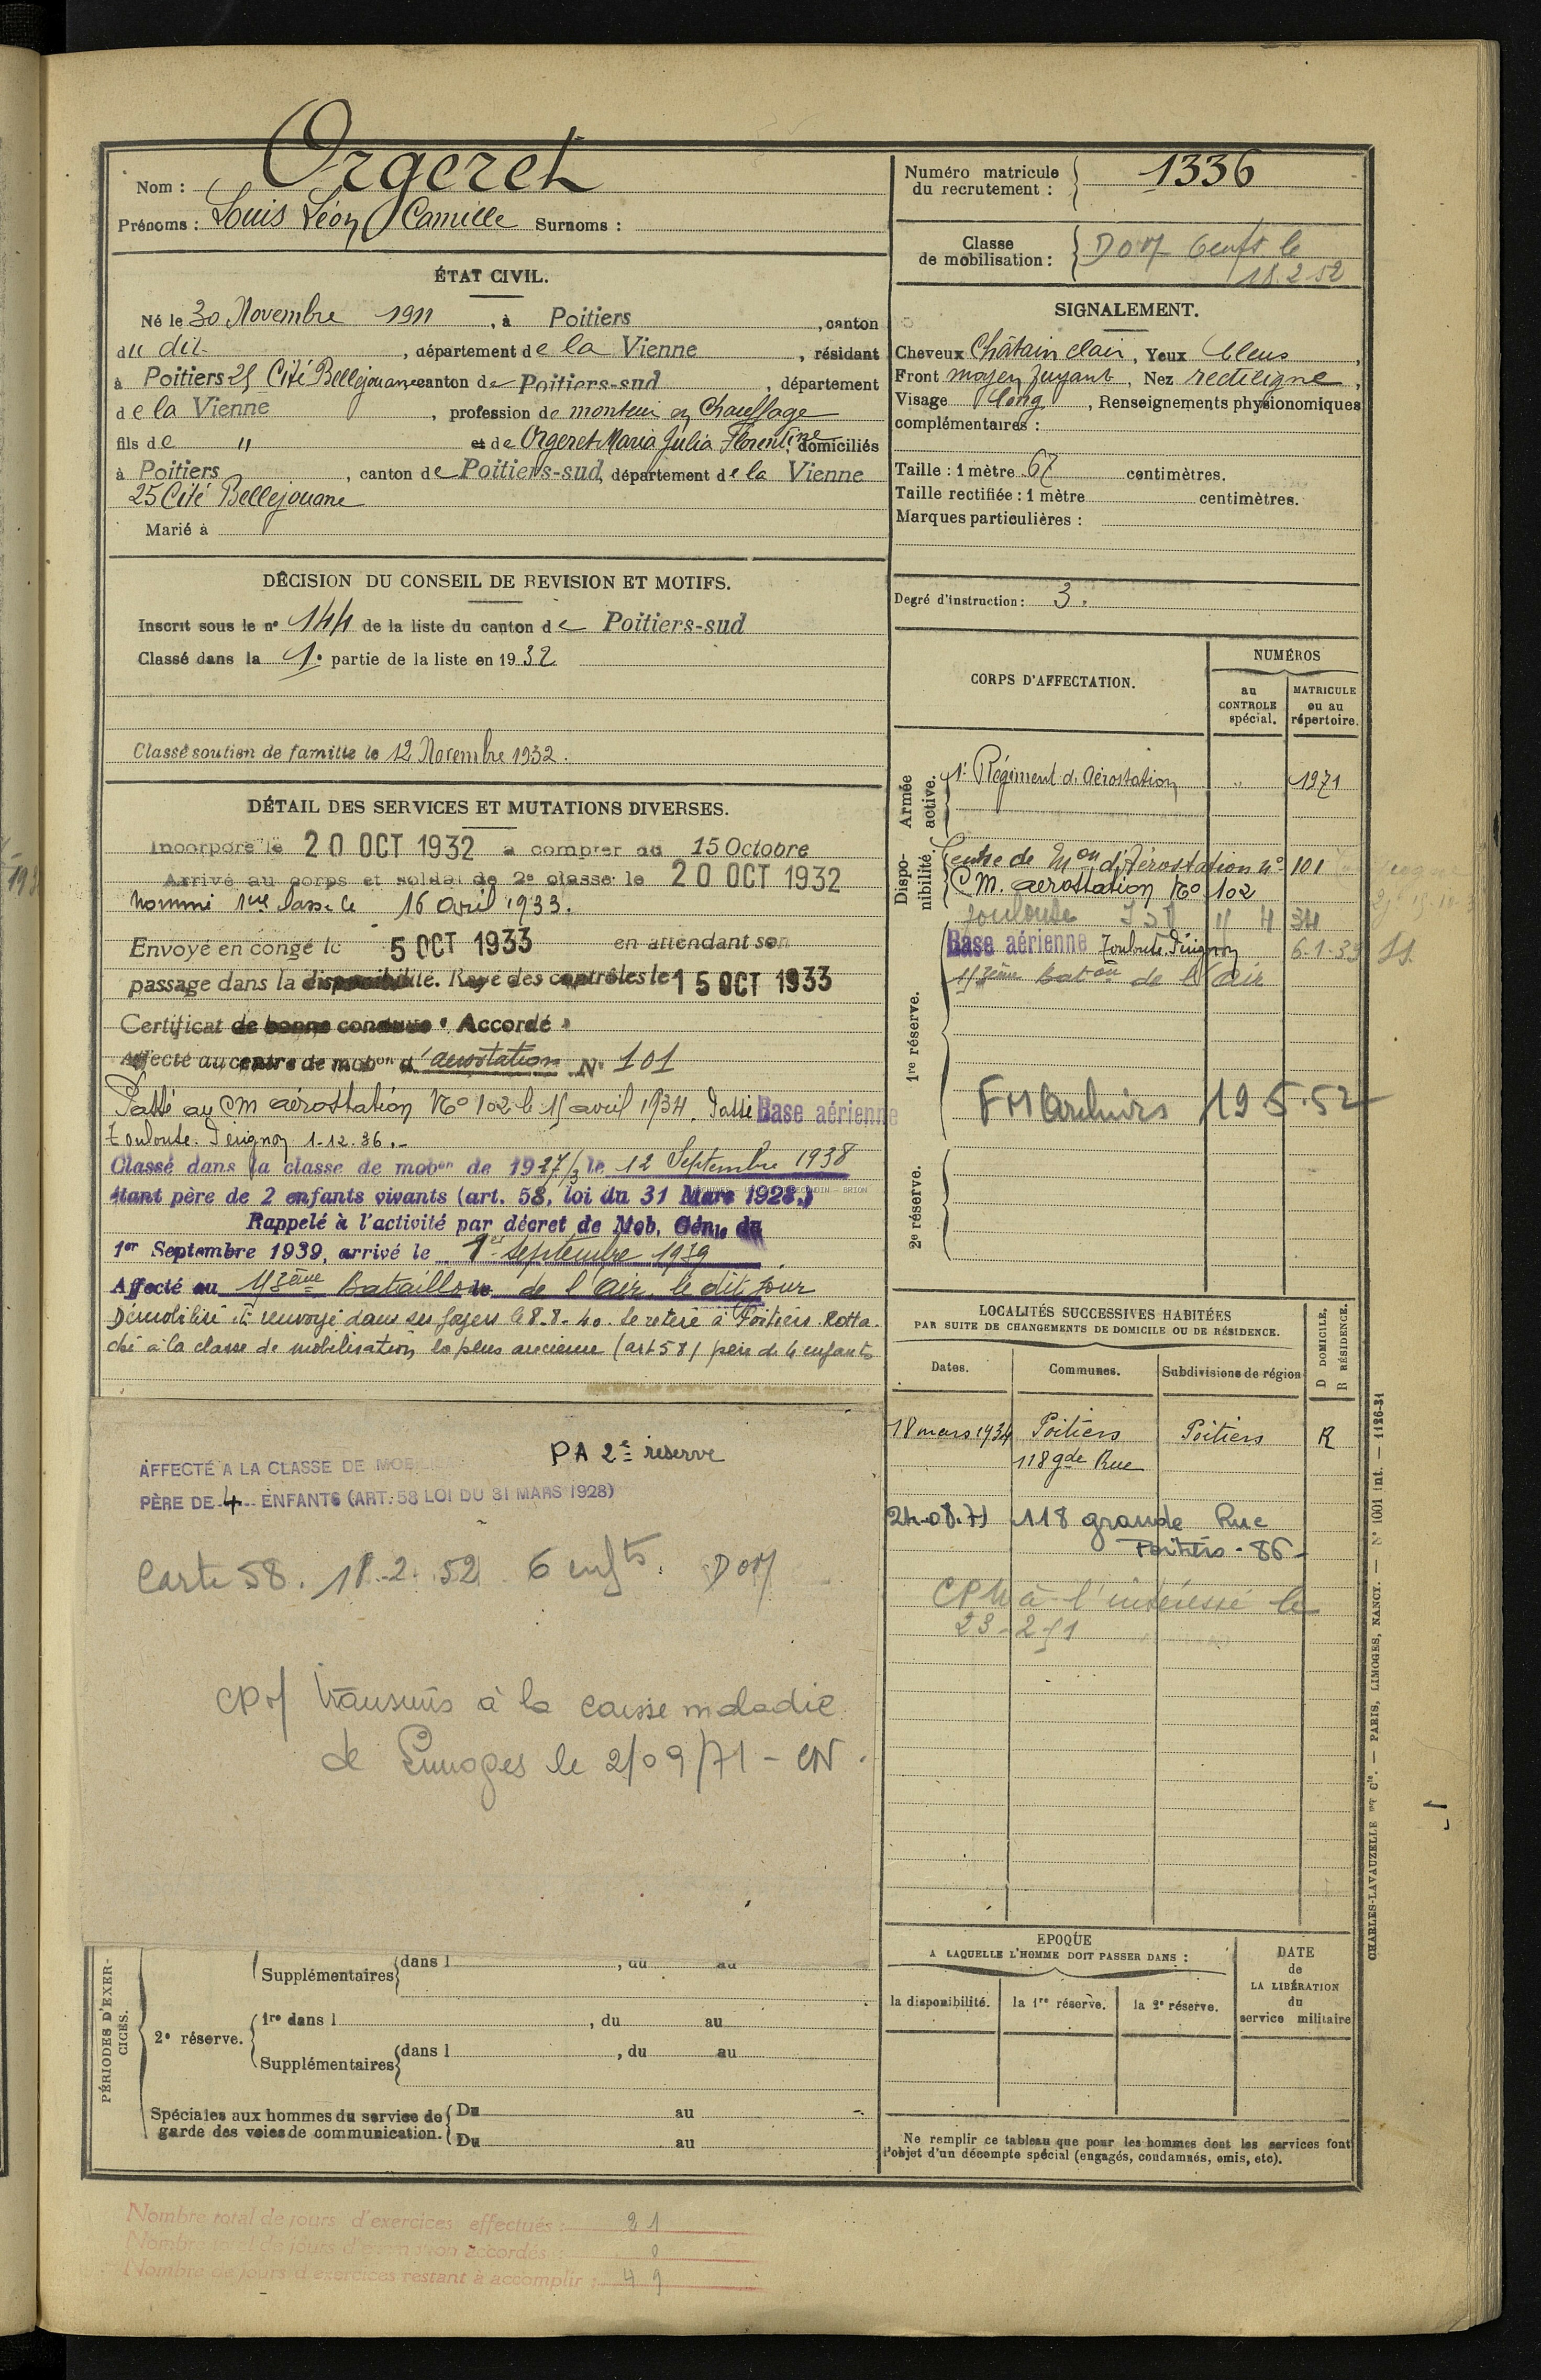 Nom : Orgeret
Prénoms : Louis Léon Camille Surnoms :
Numéro matricule du recrutement : 1336
Classe de mobilisation : DOM 6 enfts le
18.2.52
ÉTAT CIVIL.
Né le 30 Novembre 1911, à Poitiers, canton
du dit, département de la Vienne, résidant
à Poitiers 25 Cité Bellejouane canton de Poitiers-sud, département
de la Vienne, profession de monteur en Chauffage
fils de " et de Orgeret Maria Julia Florentine, domiciliés
à Poitiers, canton de Poitiers-sud, département de la Vienne
25 Cité Bellejouane
Marié à
SIGNALEMENT.
Cheveux Châtain clair, Yeux bleus,
Front moyen fuyant, Nez rectiligne,
Visage long, Renseignements physionomiques
complémentaires :
Taille : 1 mètre 67 centimètres.
Taille rectifiée : 1 mètre centimètres.
Marques particulières :
Degré d'instruction : 3.
DÉCISION DU CONSEIL DE REVISION ET MOTIFS.
Inscrit sous le n° 144 de la liste du canton de Poitiers-sud
Classé dans la 1e partie de la liste en 1932
Classé soutien de famille le 12 Novembre 1932.
DÉTAIL DES SERVICES ET MUTATIONS DIVERSES.
Incorporé le 20 OCT 1932 à compter du 15 Octobre
Arrivé au corps et soldat de 2e classe le 20 OCT 1932
Nommé 1ère classe le 16 avril 1933.
Envoyé en congé le 5 OCT 1933 en attendant son
passage dans la disponibilité. Rayé des contrôles le 15 OCT 1933
Certificat de bonne conduite « Accordé »
Affecté au centre de mobon d'aérostation N° 101
Passé au CM aérostation No 102 le 15 avril 1934. Passé Base aérienne
Toulouse. Pérignon 1-12-36.-
Classé dans la classe de mobon de 1927/3 le 12 Septembre 1938
étant père de 2 enfants vivants (art. 58, loi du 31 Mars 1928.)
Rappelé à l'activité par décret de Mob. Génle du
1er Septembre 1939, arrivé le 1er septembre 1939
Affecté au 113ème Bataillon de l'air le dit jour
Démobilisé et renvoyé dans ses foyers le 8.8.40. Se retire à Poitiers. Ratta-
ché à la classe de mobilisation la plus ancienne (art 58) père de 4 enfants
PA 2e réserve
AFFECTÉ A LA CLASSE DE
PÈRE DE 4 ENFANTS (ART. 58 LOI DU 31 MARS 1928)
Carte 58. 18.2.52 6 enfts. DOM
CPM transmis à la caisse maladie
de Limoges le 2/09/71 - CN.
CORPS D'AFFECTATION.
NUMÉROS
au CONTROLE spécial.
MATRICULE ou au répertoire.
Armée active.
1er Régiment d'Aérostation " 1971
Disponibilité.
Centre de Mon d'Aérostation n° 101
CM. aérostation No 102
Toulouse
Base aérienne Toulouse Pérignon 6-1-39
113ème baton de l'Air
1re réserve.
FM 19.5.52
2e réserve.
LOCALITÉS SUCCESSIVES HABITÉES
PAR SUITE DE CHANGEMENTS DE DOMICILE OU DE RÉSIDENCE.
D DOMICILE.
R RÉSIDENCE.
Dates. Communes. Subdivisions de région
18 mars 1934 Poitiers Poitiers R
118 gde Rue
24.08.71 118 grande Rue
Poitiers - 86 -
CPM à l'intéressé le
23-2-51
PÉRIODES D'EXERCICES.
Supplémentaires dans l , du au
2e réserve.
1re dans l , du au
Supplémentaires dans l , du au
Spéciales aux hommes du service de garde des voies de communication.
Du au
Du au
EPOQUE
A LAQUELLE L'HOMME DOIT PASSER DANS :
la disponibilité. la 1re réserve. la 2e réserve.
DATE de LA LIBÉRATION du service militaire
Ne remplir ce tableau que pour les hommes dont les services font
l'objet d'un décompte spécial (engagés, condamnés, omis, etc).
CHARLES-LAVAUZELLE ET Cie. — PARIS, LIMOGES, NANCY. — N° 1001 int. — 1126-31
Nombre total de jours d'exercices effectués : 21
Nombre total de jours d'exemption accordés : 0
Nombre de jours d'exercices restant à accomplir : 49